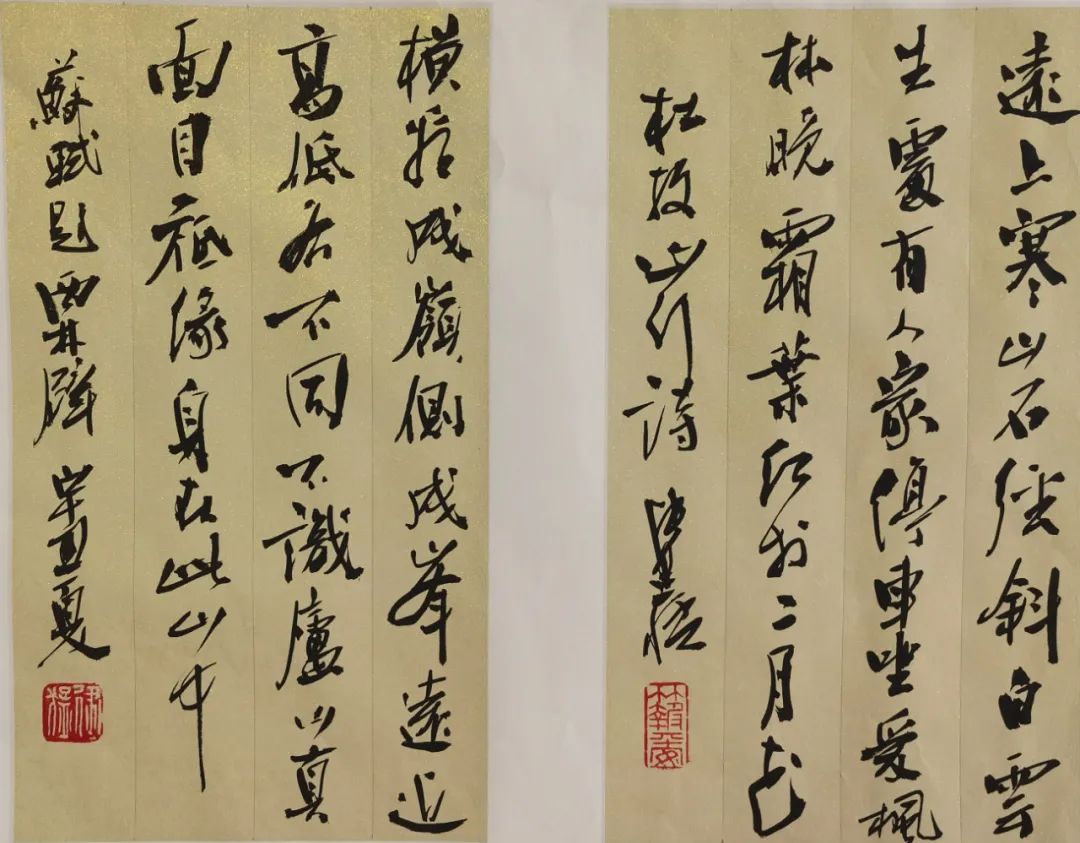 遠上寒山石徑斜白雲
生處有人家停車坐愛楓
林晚霜葉紅於二月花
杜牧山行詩
橫看成嶺側成峯遠近
高低各不同不識廬山真
面目祗緣身在此山中
蘇軾題西林壁 辛丑夏